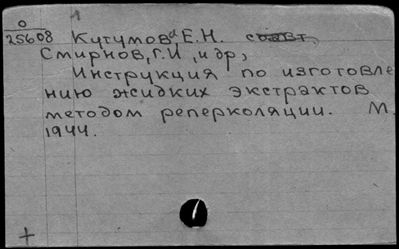 О
25608 Кутумова Е.Н.
Смирнов, Г.И., и др,
Инструкция по изготовле
нию жидких экстрактов
методом реперколяции. М.
1944.